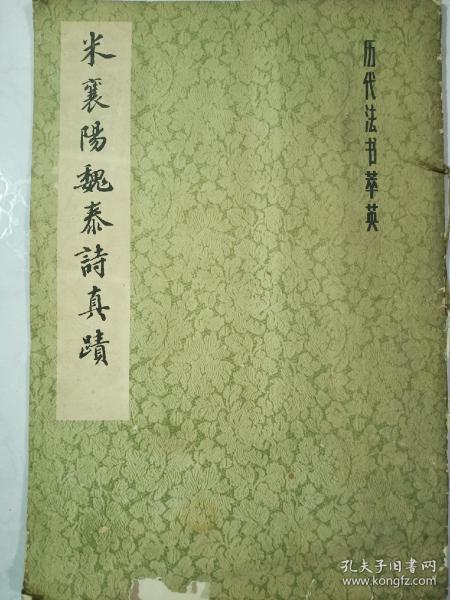 历代法书萃英
米襄陽魏泰詩真蹟
孔夫子旧书网
www.kongfz.com